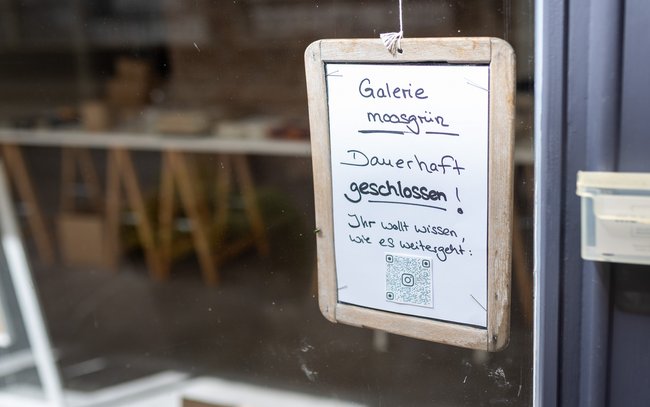 Galerie
moosgrün
Dauerhaft
geschlossen!
Ihr wollt wissen,
wie es weitergeht: